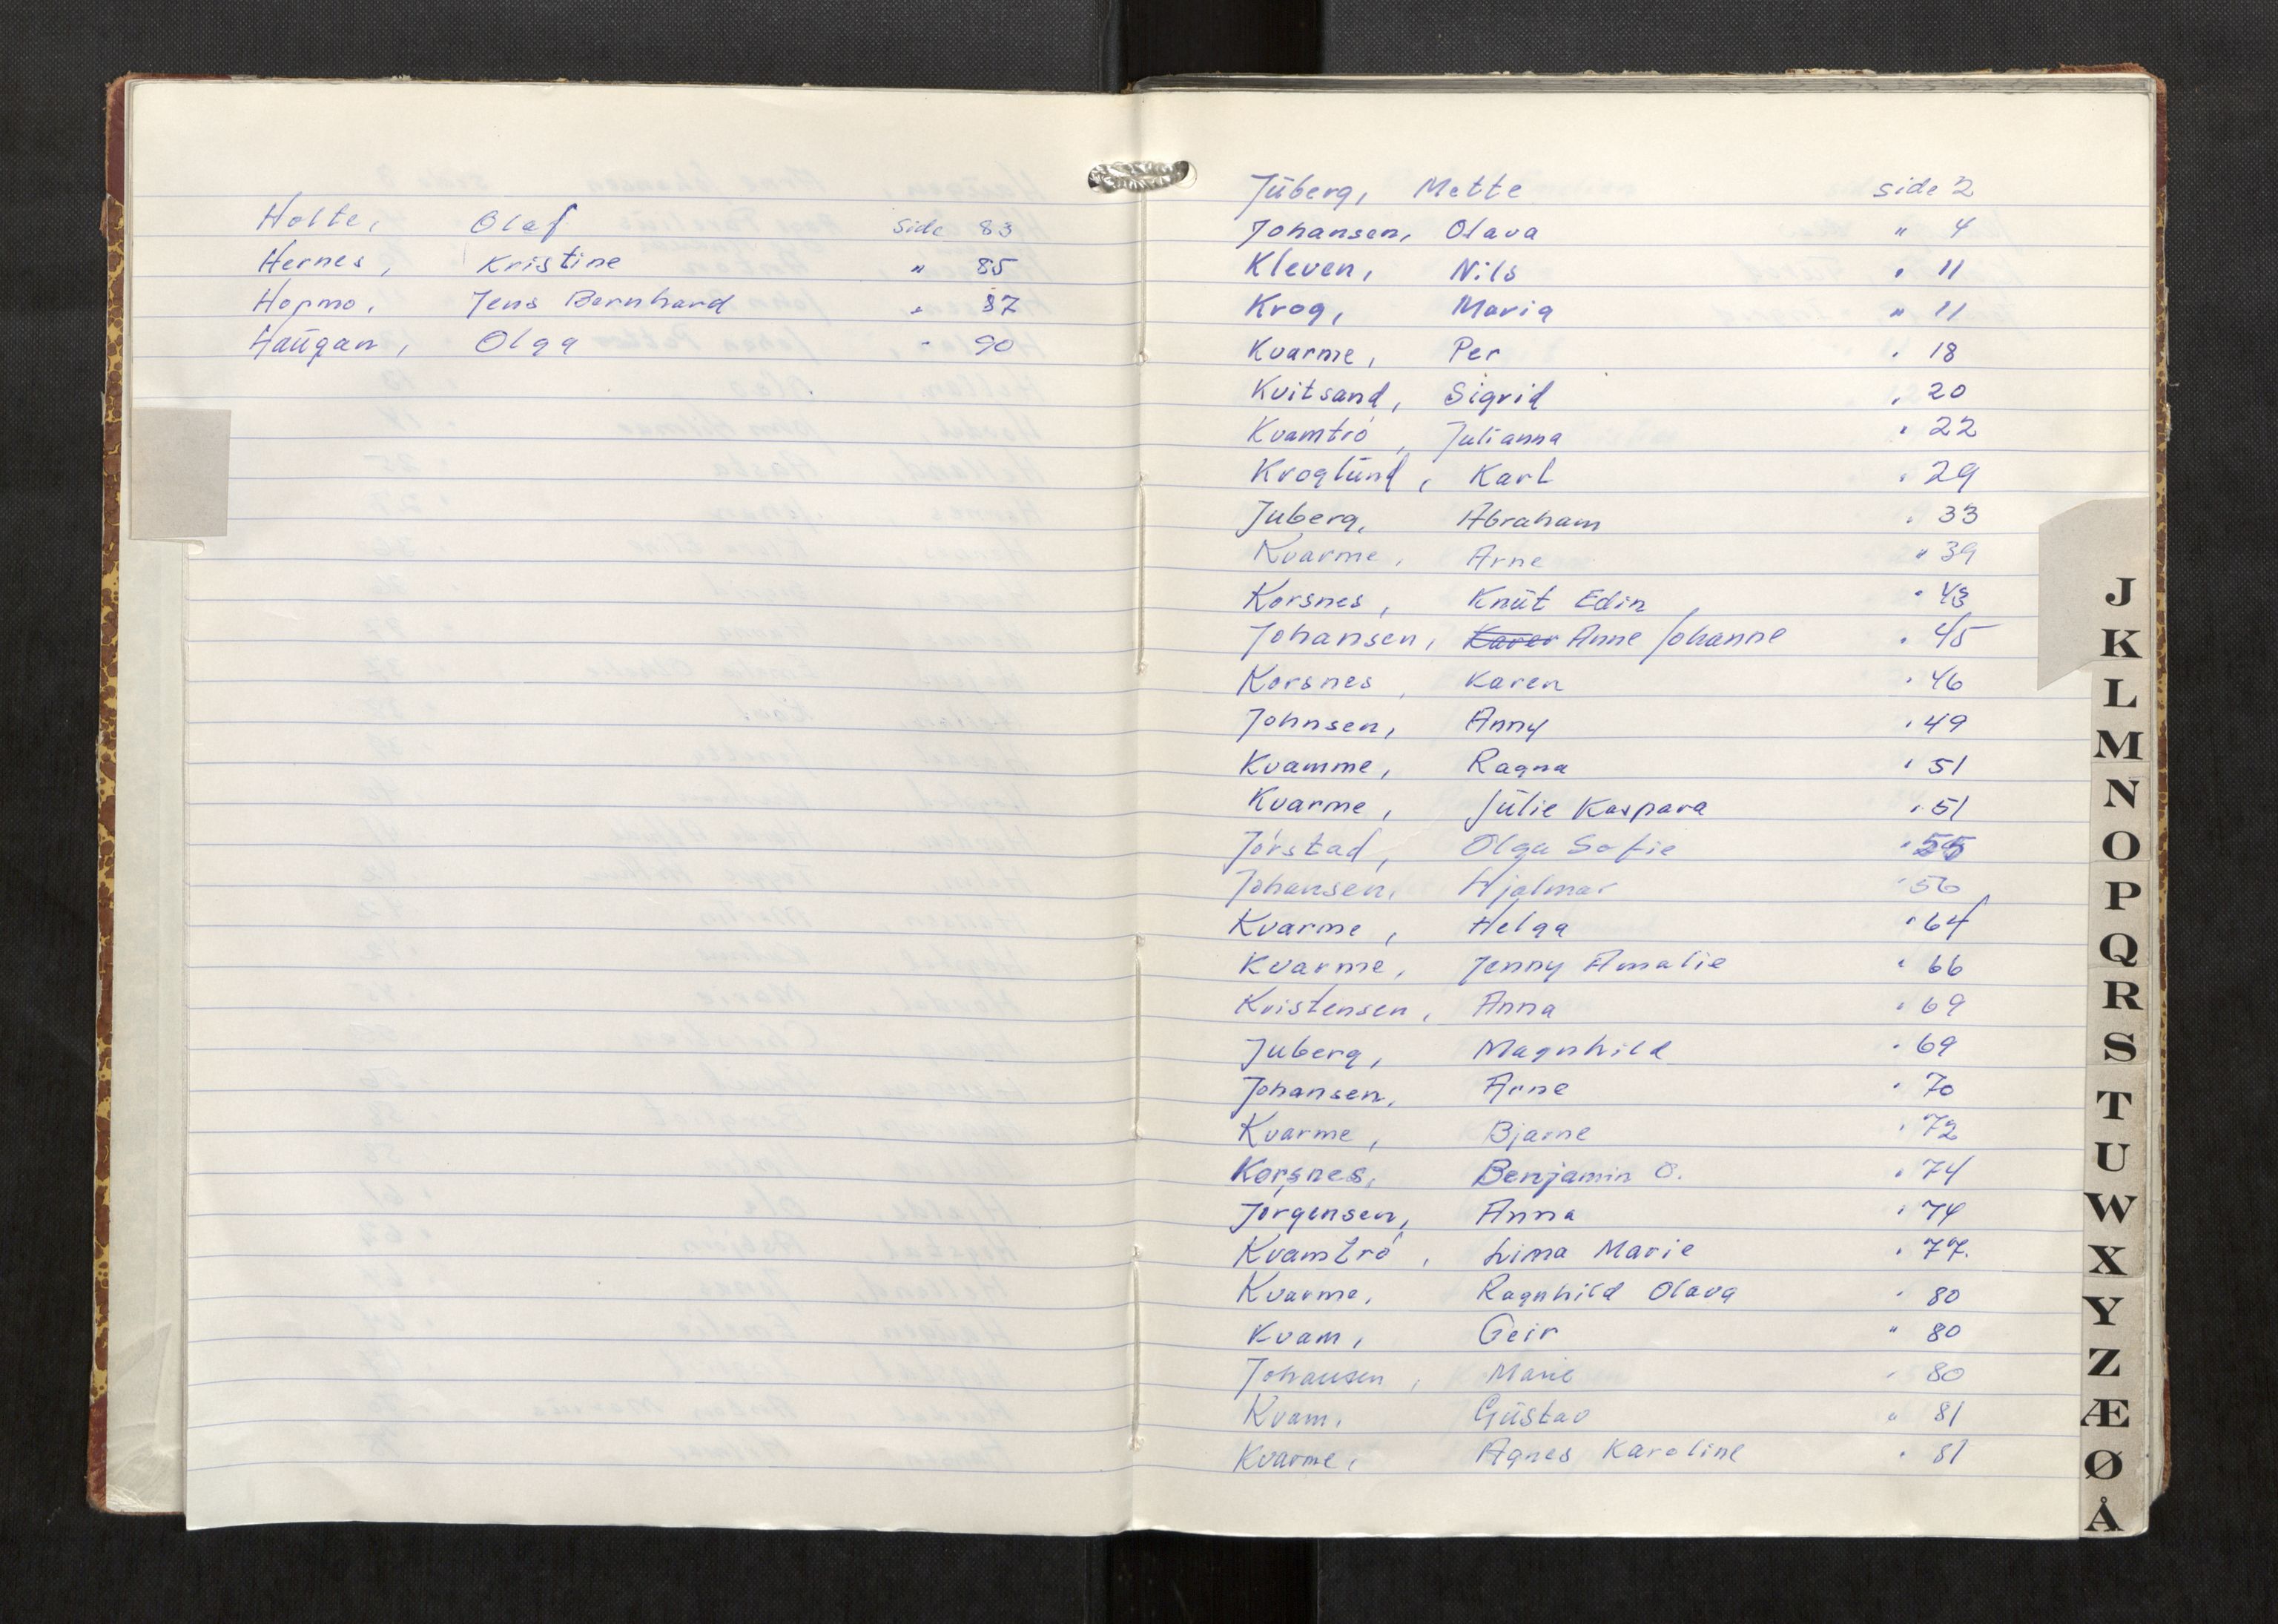 Holte, Olaf side 83
Hernes, Kristine " 85
Hopmo, Jens Bernhard " 87
Haugan, Olga " 90
Juberg, Mette side 2
Johansen, Olava " 4
Kleven, Nils " 11
Krog, Maria " 11
Kvarme, Per " 18
Kvitsand, Sigrid " 20
Kvamtrö, Julianna " 22
Kroglund, Karl " 29
Juberg, Abraham " 33
Kvarme, Arne " 39
Korsnes, Knut Edin " 43
Johansen, Karen Anne Johanne " 45
Korsnes, Karen " 46
Johnsen, Anny " 49
Kvamme, Ragna " 51
Kvarme, Julie Kaspara " 51
Jörstad, Olga Sofie " 55
Johansen, Hjalmar " 56
Kvarme, Helga " 64
Kvarme, Jenny Amalie " 66
Kristensen, Anna " 69
Juberg, Magnhild " 69
Johansen, Arne " 70
Kvarme, Bjarne " 72
Korsnes, Benjamin O. " 74
Jörgensen, Anna " 74
Kvamtrö, Lina Marie " 77.
Kvarme, Ragnhild Olava " 80
Kvam, Geir " 80
Johansen, Marie " 80
Kvam, Gustav " 81
Kvarme, Agnes Karoline " 81
J
K
L
M
N
O
P
Q
R
S
T
U
W
X
Y
Z
Æ
Ø
Å